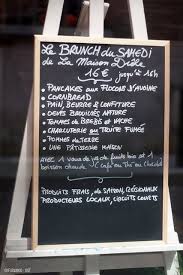 Le BRUNCH du SAMEDI
de La Maison Drôle
16€ jusqu'à 16h
• PANCAKES AUX FLOCONS D'AVOINE
• CORNBREAD
• PAIN, BEURRE & CONFITURE
• OEUFS BROUILLÉS NATURE
• TOMMES DE BREBIS et VACHE
• CHARCUTERIE ou TRUITE FUMÉE
• POMMES de TERRE
• UNE PÂTISSERIE MAISON
avec 1 verre de jus de fruits bio et 1
boisson chaude café ou thé ou chocolat
PRODUITS FRAIS, de SAISON, RÉGIONAUX
PRODUCTEURS LOCAUX, CIRCUITS COURTS